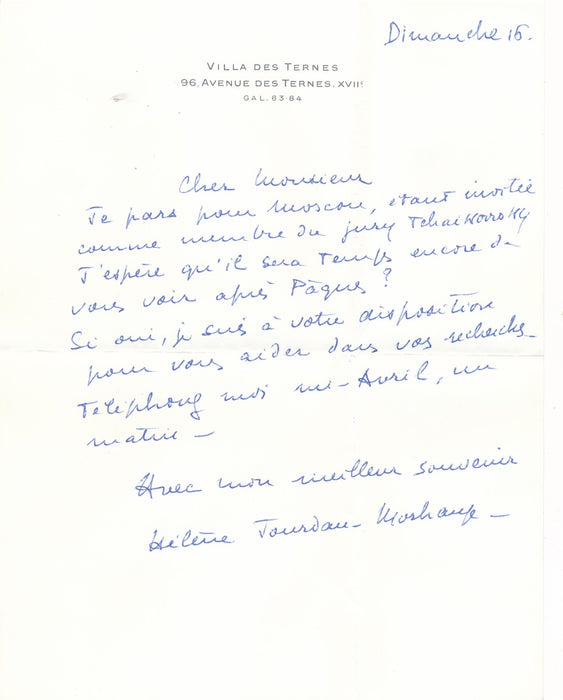 Dimanche 16.
VILLA DES TERNES
96, AVENUE DES TERNES. XVIIE
GAL. 63-84
Cher Monsieur
Je pars pour Moscou, étant invitée
comme membre du jury Tchaïkovsky
J'espère qu'il sera temps encore de
vous voir après Pâques ?
Si oui, je suis à votre disposition
pour vous aider dans vos recherches_
Téléphonez moi mi-Avril, un
matin —
Avec mon meilleur souvenir
Hélène Jourdan-Morhange —